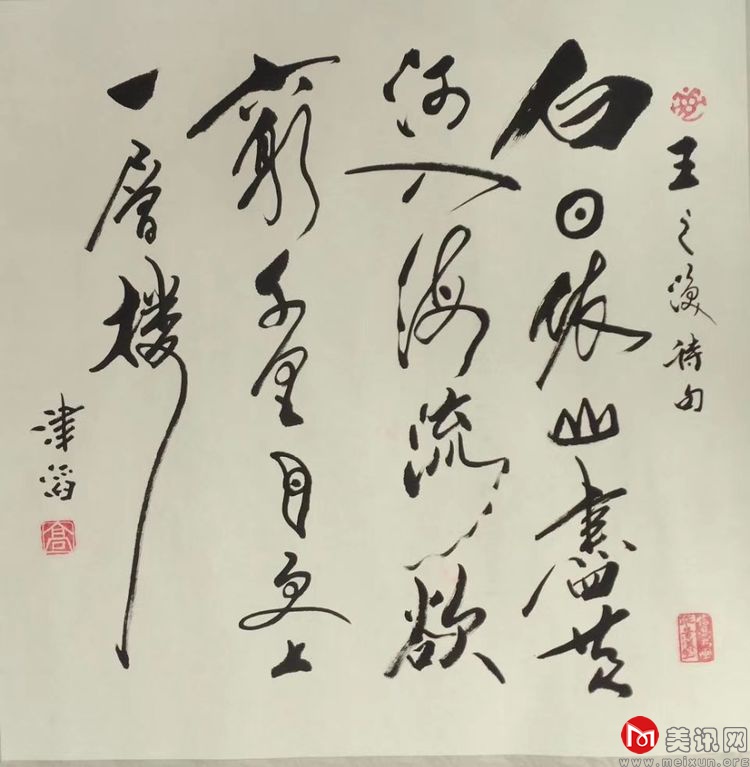 王之渙詩句
白日依山盡黄
河入海流欲
窮千里目更上
一層樓
津滔
高
美讯网
www.meixun.org